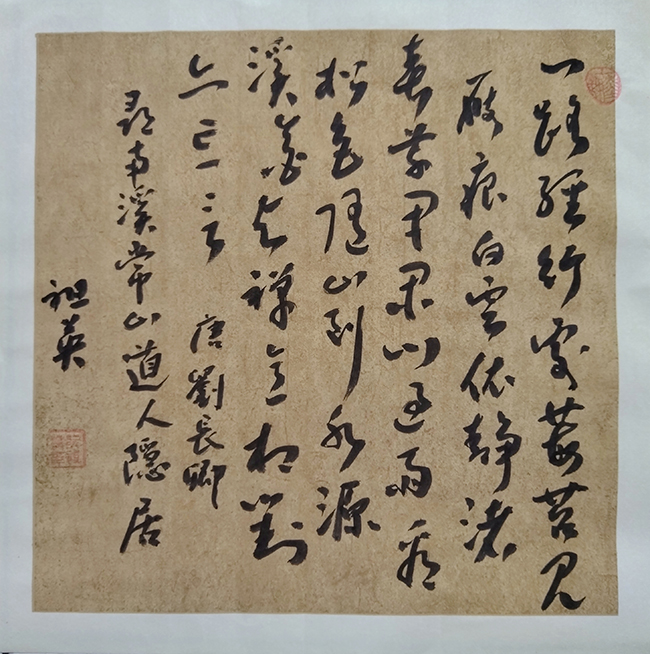 一路經行處莓苔見
屐痕白雲依静渚
春草閉閑門過雨看
松色隨山到水源
溪花與禪意相對
亦忘言 唐劉長卿
尋南溪常山道人隱居
祖英